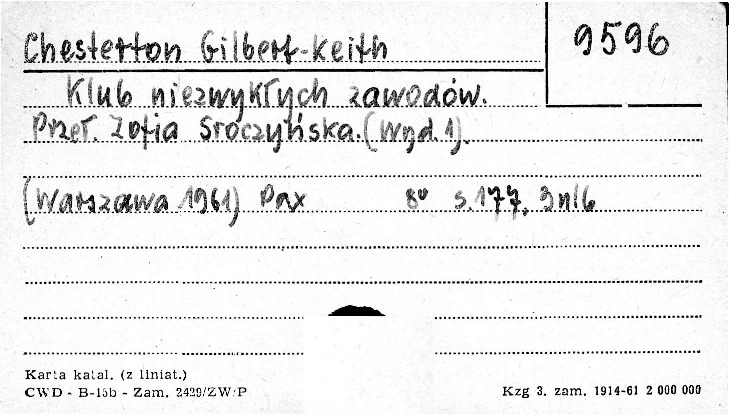 Chesterton Gilbert-Keith
9596
Klub niezwykłych zawodów.
Przeł. Zofia Sroczyńska. (Wyd. 1).
(Warszawa 1961) Pax 8° s. 177, 3nlb
Karta katal. (z liniat.)
CWD - B-15b - Zam. 2429/ZW/P
Kzg 3. zam. 1914-61 2 000 000